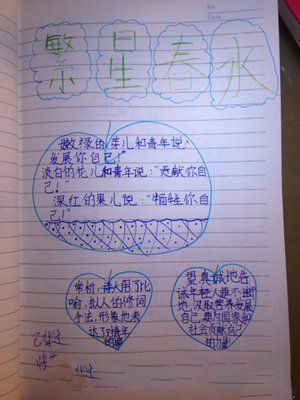 No
Date
繁星春水
嫩绿的芽儿和青年说:
发展你自己!"
淡白的花儿和青年说:"贡献你自
己!"
深红的果儿说:"牺牲你自
己!"
赏析:诗人用了比
喻,拟人的修词
手法,形象地表
达了对青年
的
望真诚地告
诫年轻人要不断
地汲取营养发展
自己,要为国家和
社会贡献自己
的力量!